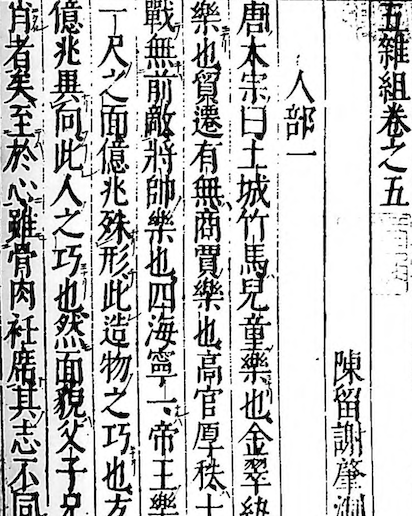 五雜組卷之五
陳留謝肇淛
人部一
唐太宗曰土城竹馬兒童樂也金翠紈
樂也貿遷有無商賈樂也高官厚秩士
戰無前敵將帥樂也四海寧一帝王樂
一尺之面億兆殊形此造物之巧也方
億兆異向此人之巧也然面貌父子兄
肖者矣至於心雖骨肉衽席其志不同